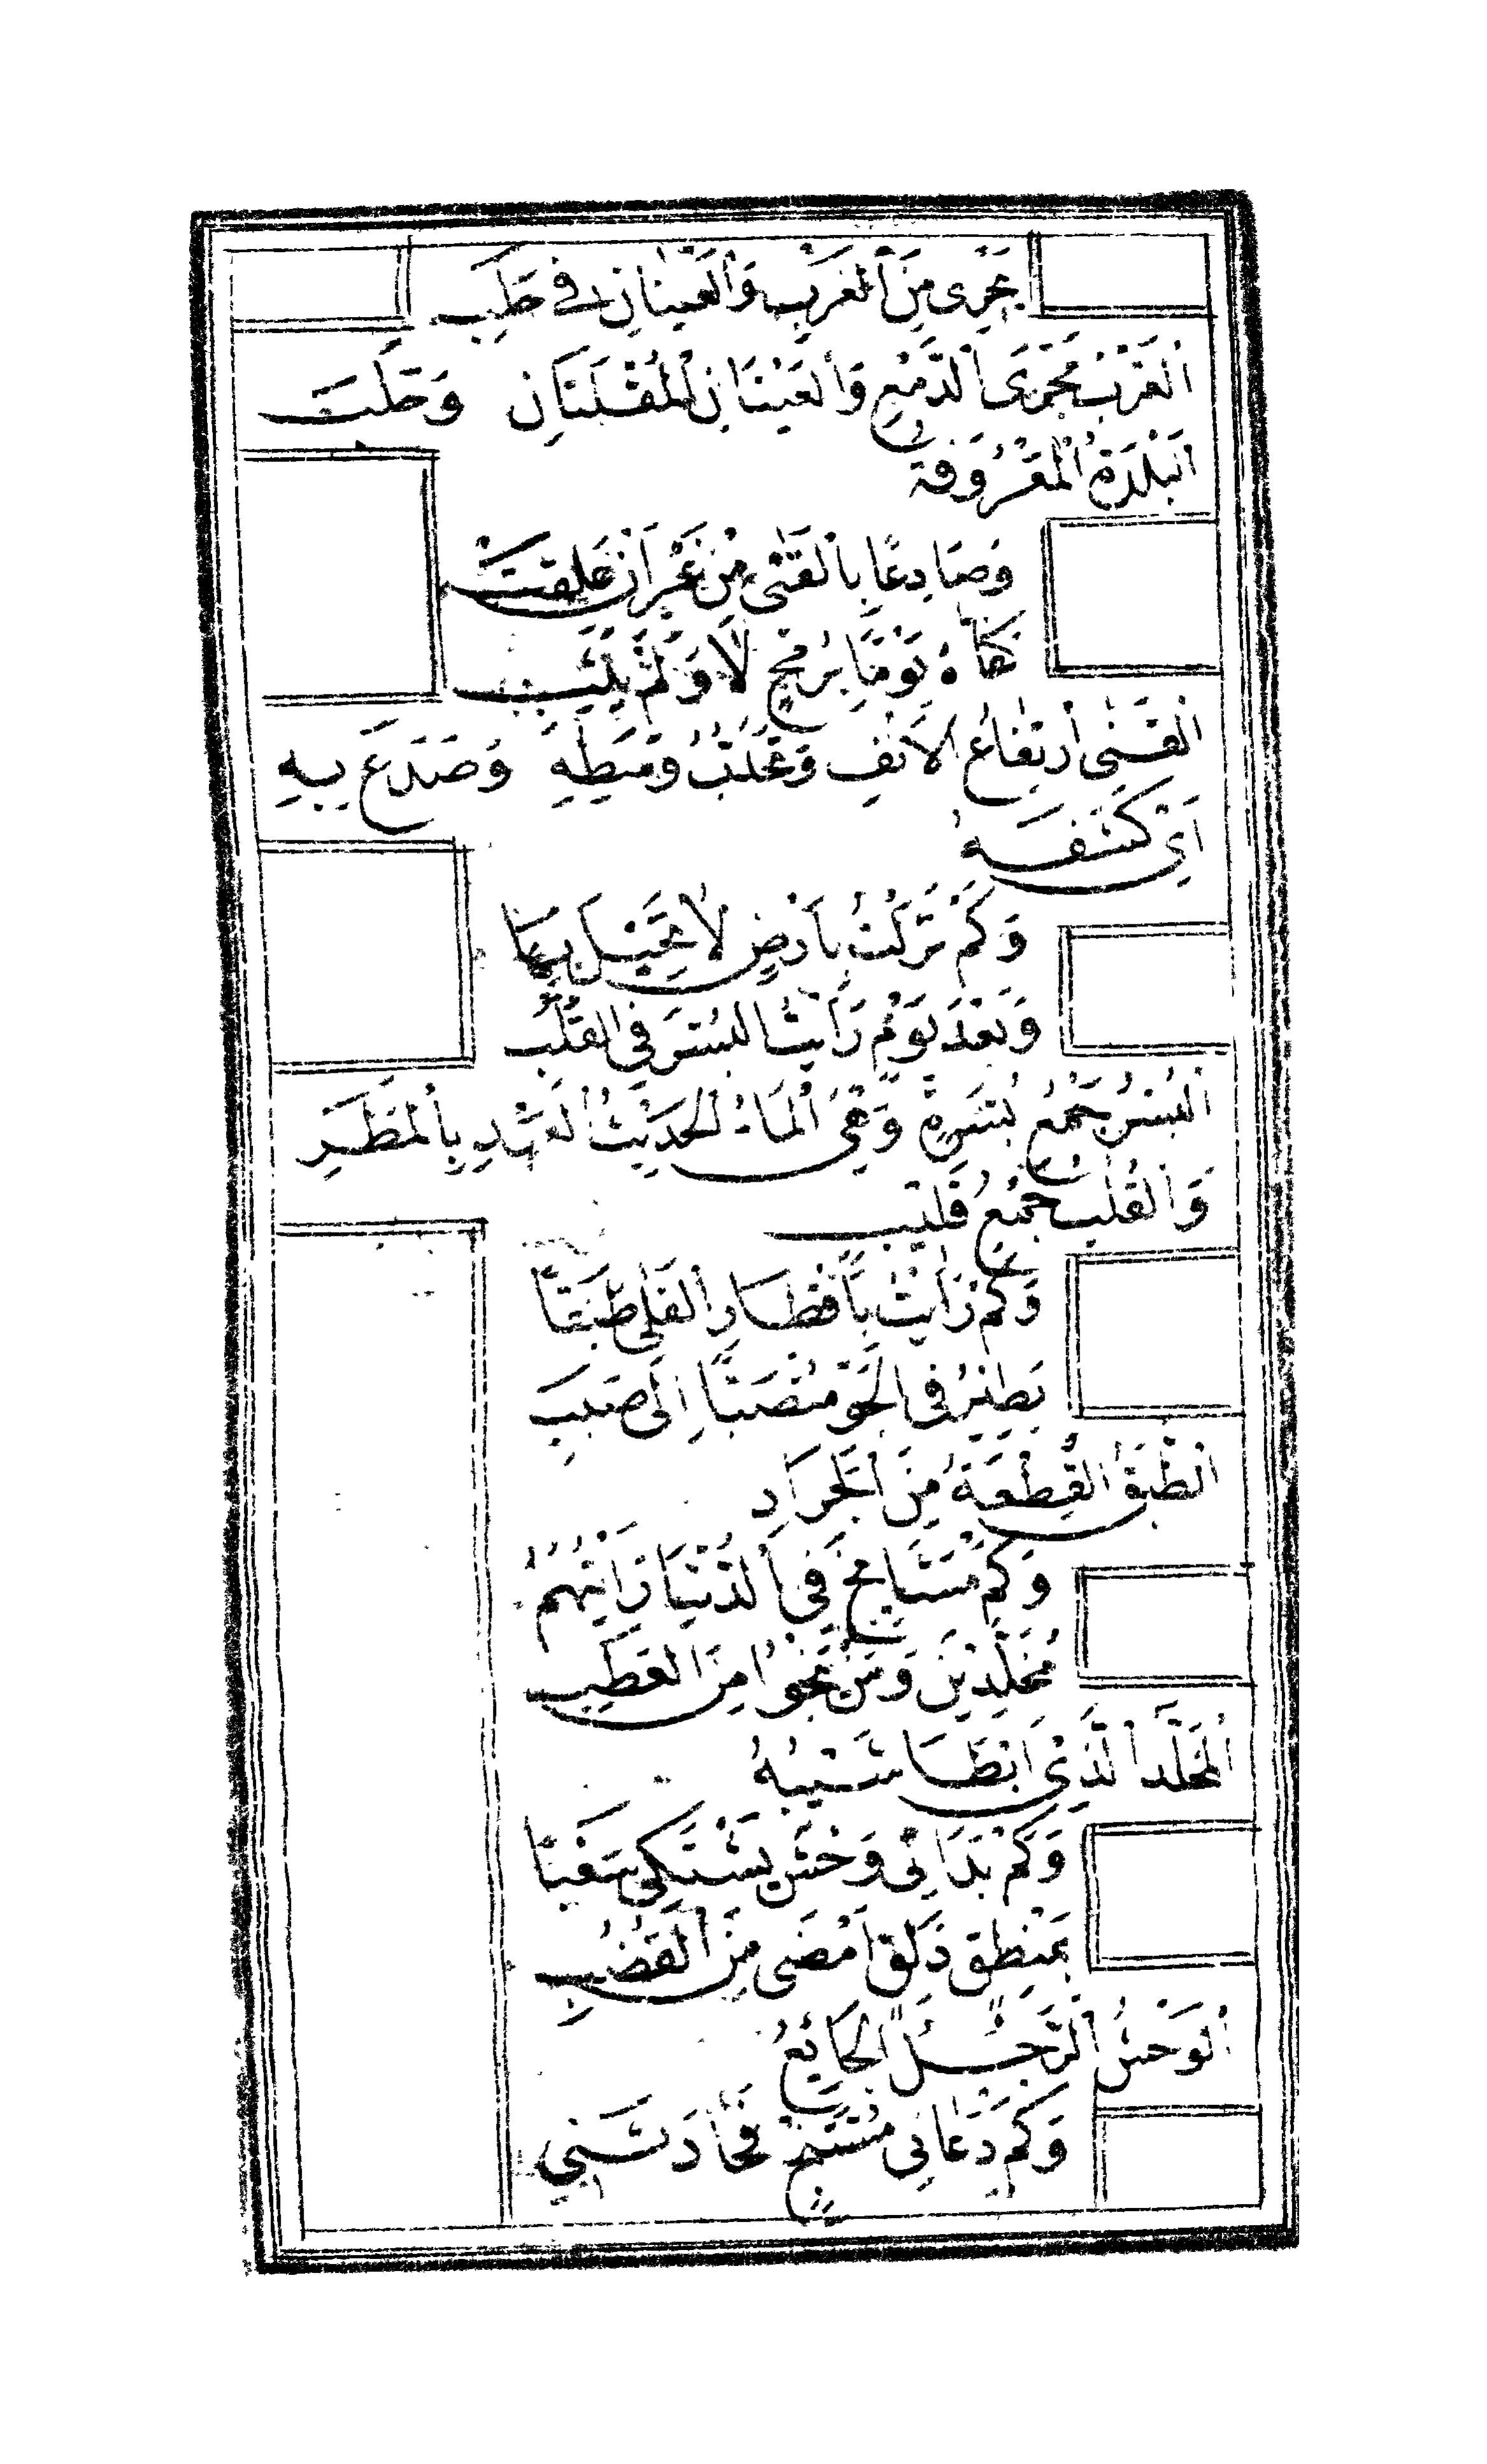 يَجْرِى مِنَ ٱلْغَرْبِ وَٱلْعَيْنَانِ فِى حَلَبِ
ٱلْغَرْبُ مَجْرَى ٱلدَّمْعِ وَٱلْعَيْنَانِ ٱلْمُقْلَتَانِ وَحَلَبَ
ٱلْبَلْدَةُ ٱلْمَعْرُوفَةُ
وَصَادِعًا بِٱلْقَنَى مِنْ غَيْرِ أَنْ عَلِقَتْ
كَفَّاهُ يَوْمًا بِرُمْحٍ لَا وَلَمْ يَثِبِ
ٱلْقَنَى ٱرْتِفَاعُ الْأَنْفِ وَتَحَدُّبُ وَسَطِهِ وَصَدَعَ بِهِ
أَىْ كَشَفَهُ
وَكَمْ نَزَلْتُ بِأَرْضٍ لَا نَخِيلَ بِهَا
وَبَعْدَ يَوْمٍ رَأَيْتُ البُسْرَ فِى القُلُبِ
ٱلْبُسْرُ جَمْعُ بُسْرَةٍ وَهْىَ ٱلْمَاءُ الْحَدِيثُ ٱلْعَهْدِ بِٱلْمَطَرِ
وَٱلْقُلُبُ جَمْعُ قَلِيبٍ
وَكَمْ رَأَيْتُ بِأَقْطَارِ ٱلْفَلَى طَبَقًا
يَطِيرُ فِى الْجَوِّ مُنْصَبًّا إِلَى صَبَبِ
ٱلطَّبَقُ القِطْعَةُ مِنَ ٱلْجَرَادِ
وَكَمْ مَشَايِخَ فِى ٱلدُّنْيَا رَأَيْتُهُمُ
مُخَلَّدِينَ وَمَنْ يَنْجُوا مِنَ العَطَبِ
ٱلْمُخَلَّدُ ٱلَّذِى أَبْطَا شَيْبُهُ
وَكَمْ بَدَا لِى وَحْشٌ يَشْتَكِى سَغَبًا
بِمَنْطِقٍ ذَلِقٍ أَمْضَى مِنَ ٱلْقُضُبِ
ٱلْوَحْشُ ٱلرَّجُلُ الْجَائِعُ
وَكَمْ دَعَانِى مُسْتَنْجٍ فَحَادَثَنِى